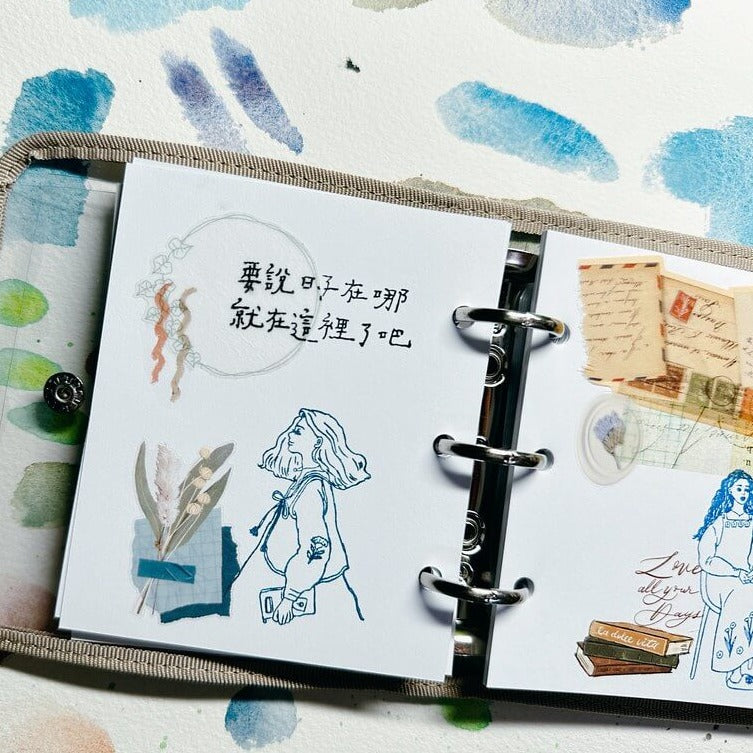 要說日子在哪
就在這裡了吧
Love
all your
Days
la dolce vita